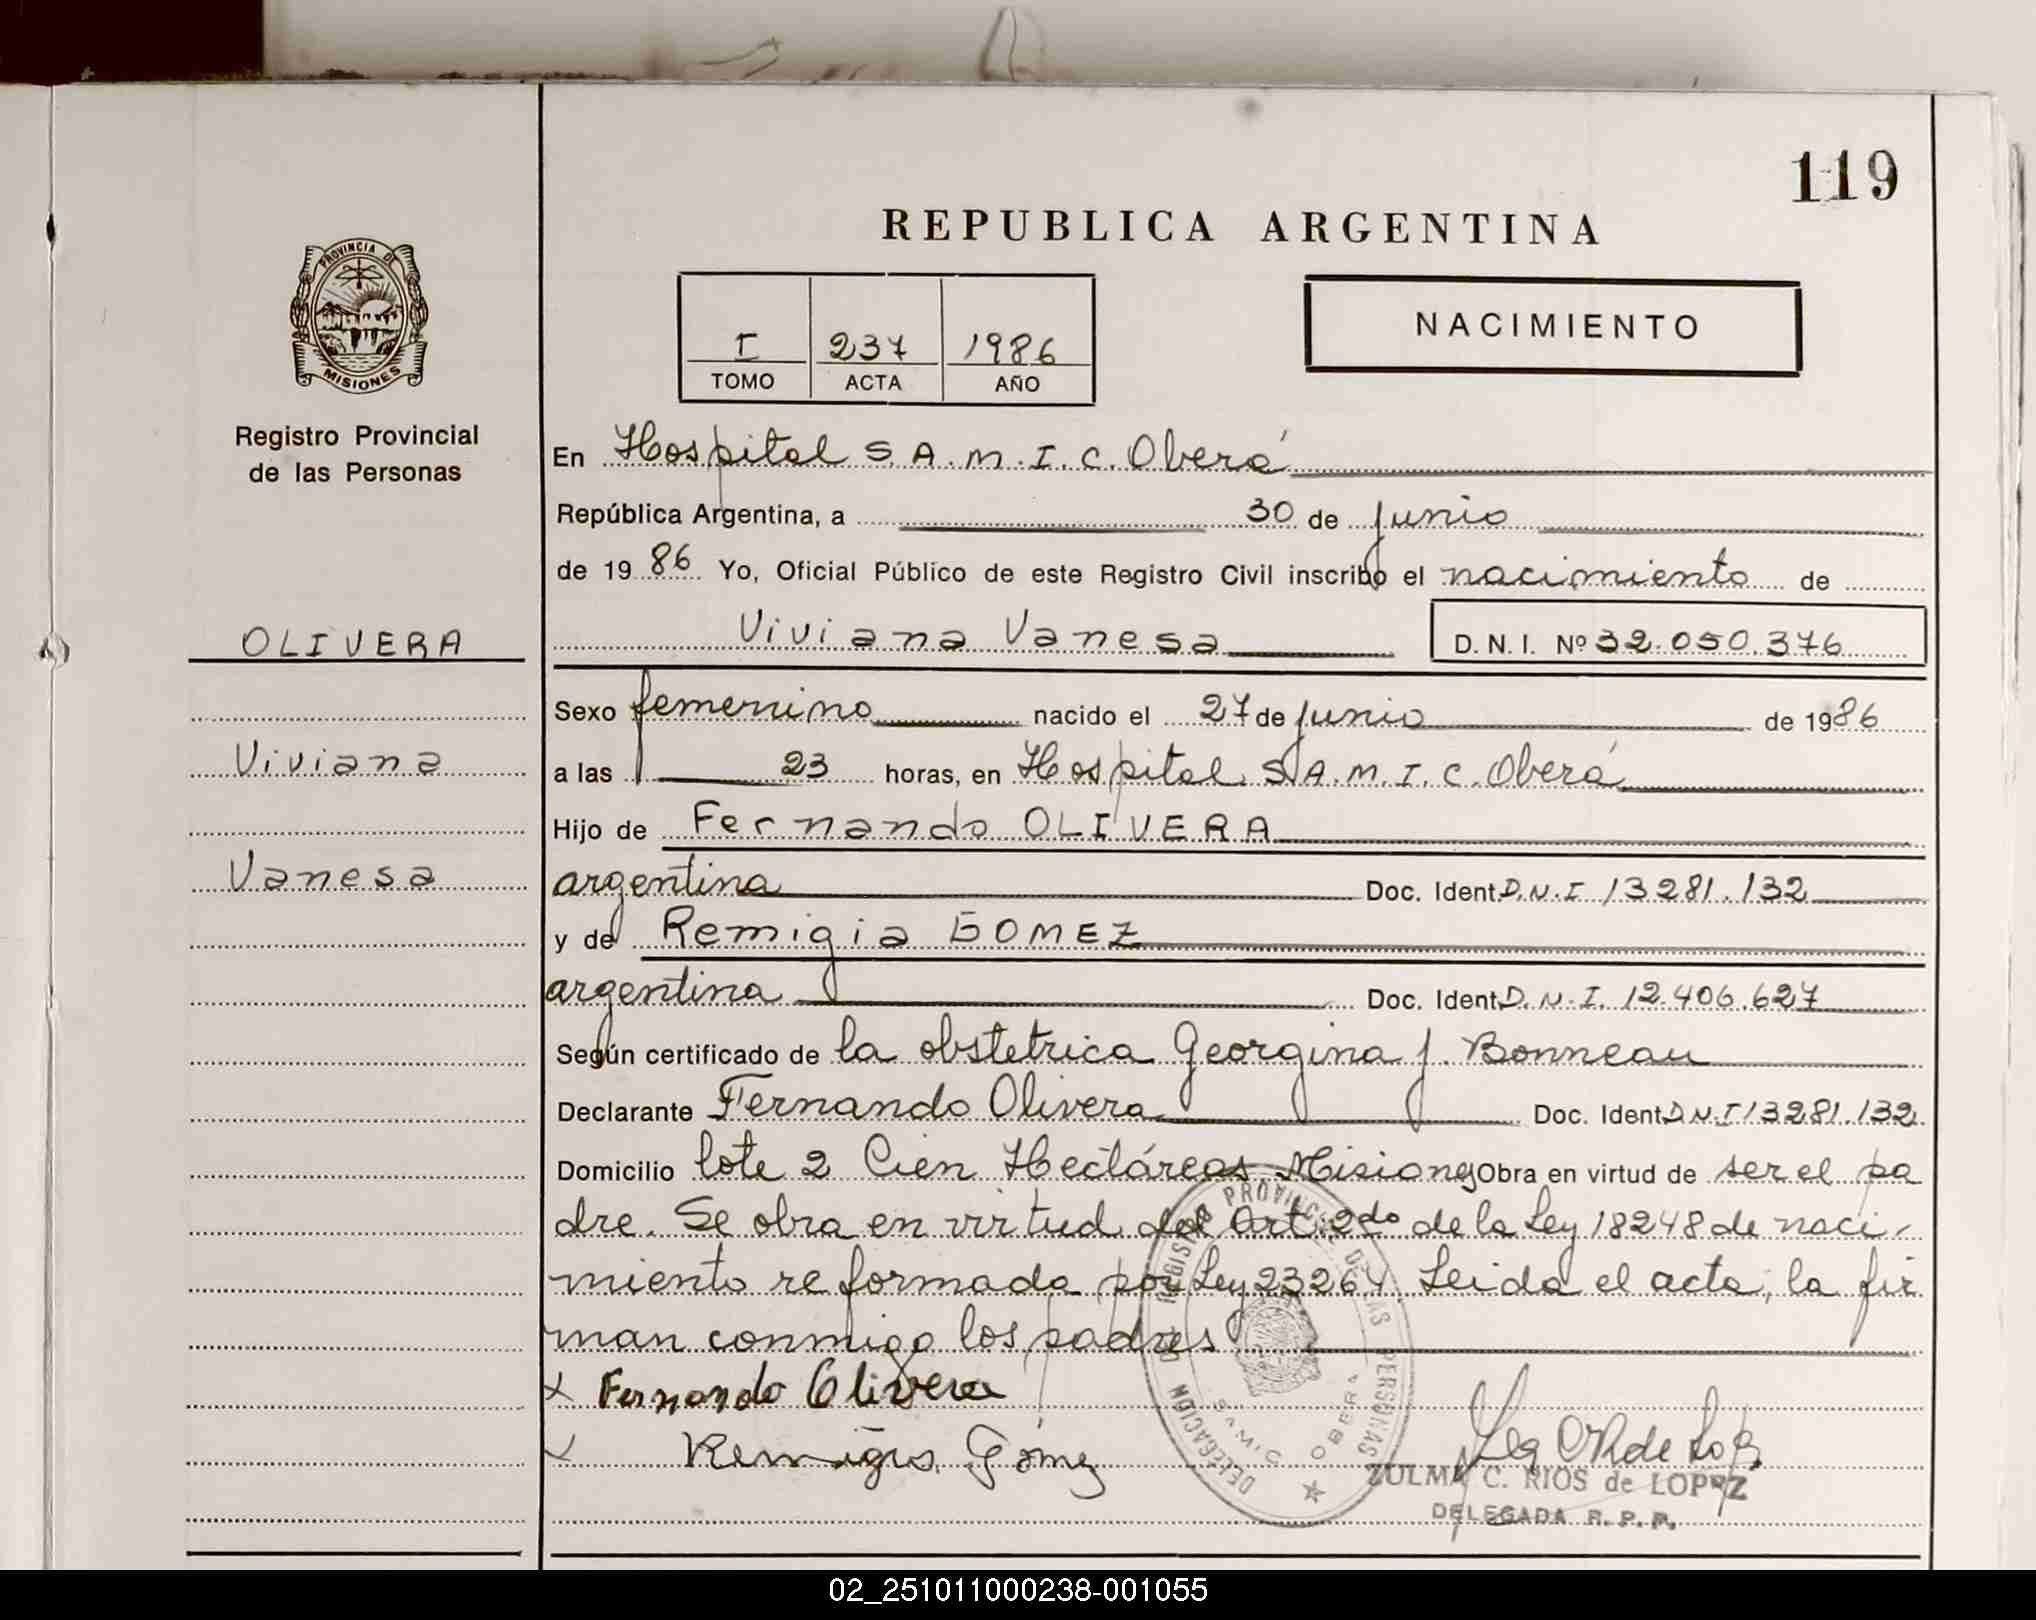 119
REPUBLICA ARGENTINA
PROVINCIA DE
MISIONES
Registro Provincial
de las Personas
I 237 1986
TOMO ACTA AÑO
NACIMIENTO
En Hospital S.A.M.I.C. Oberá
República Argentina, a 30 de junio
de 1986 Yo, Oficial Público de este Registro Civil inscribo el nacimiento de
OLIVERA
Viviana Vanesa D.N.I. Nº 32.050.376
Sexo femenino nacido el 27 de junio de 1986
Viviana
a las 23 horas, en Hospital S.A.M.I.C. Oberá
Hijo de Fernando OLIVERA
Vanesa
argentina Doc. Ident. D.N.I 13281.132
y de Remigia GOMEZ
argentina Doc. Ident. D.N.I. 12.406.627
Según certificado de la obstetrica Georgina J. Bonneau
Declarante Fernando Olivera Doc. Ident. D.N.I 13281.132
Domicilio lote 2 Cien Hectáreas Misiones Obra en virtud de ser el pa
dre. Se obra en virtud del Art. 2do de la Ley 18248 de naci-
miento reformada por Ley 23264. Leida el acta, la fir
man conmigo los padres
x Fernando Olivera
x Remigia Gómez
DELEGACION DEL REGISTRO PROVINCIAL DE LAS PERSONAS
SAMIC OBERA
ZULMA C. RIOS de LOPEZ
DELEGADA R.P.P.
02_251011000238-001055